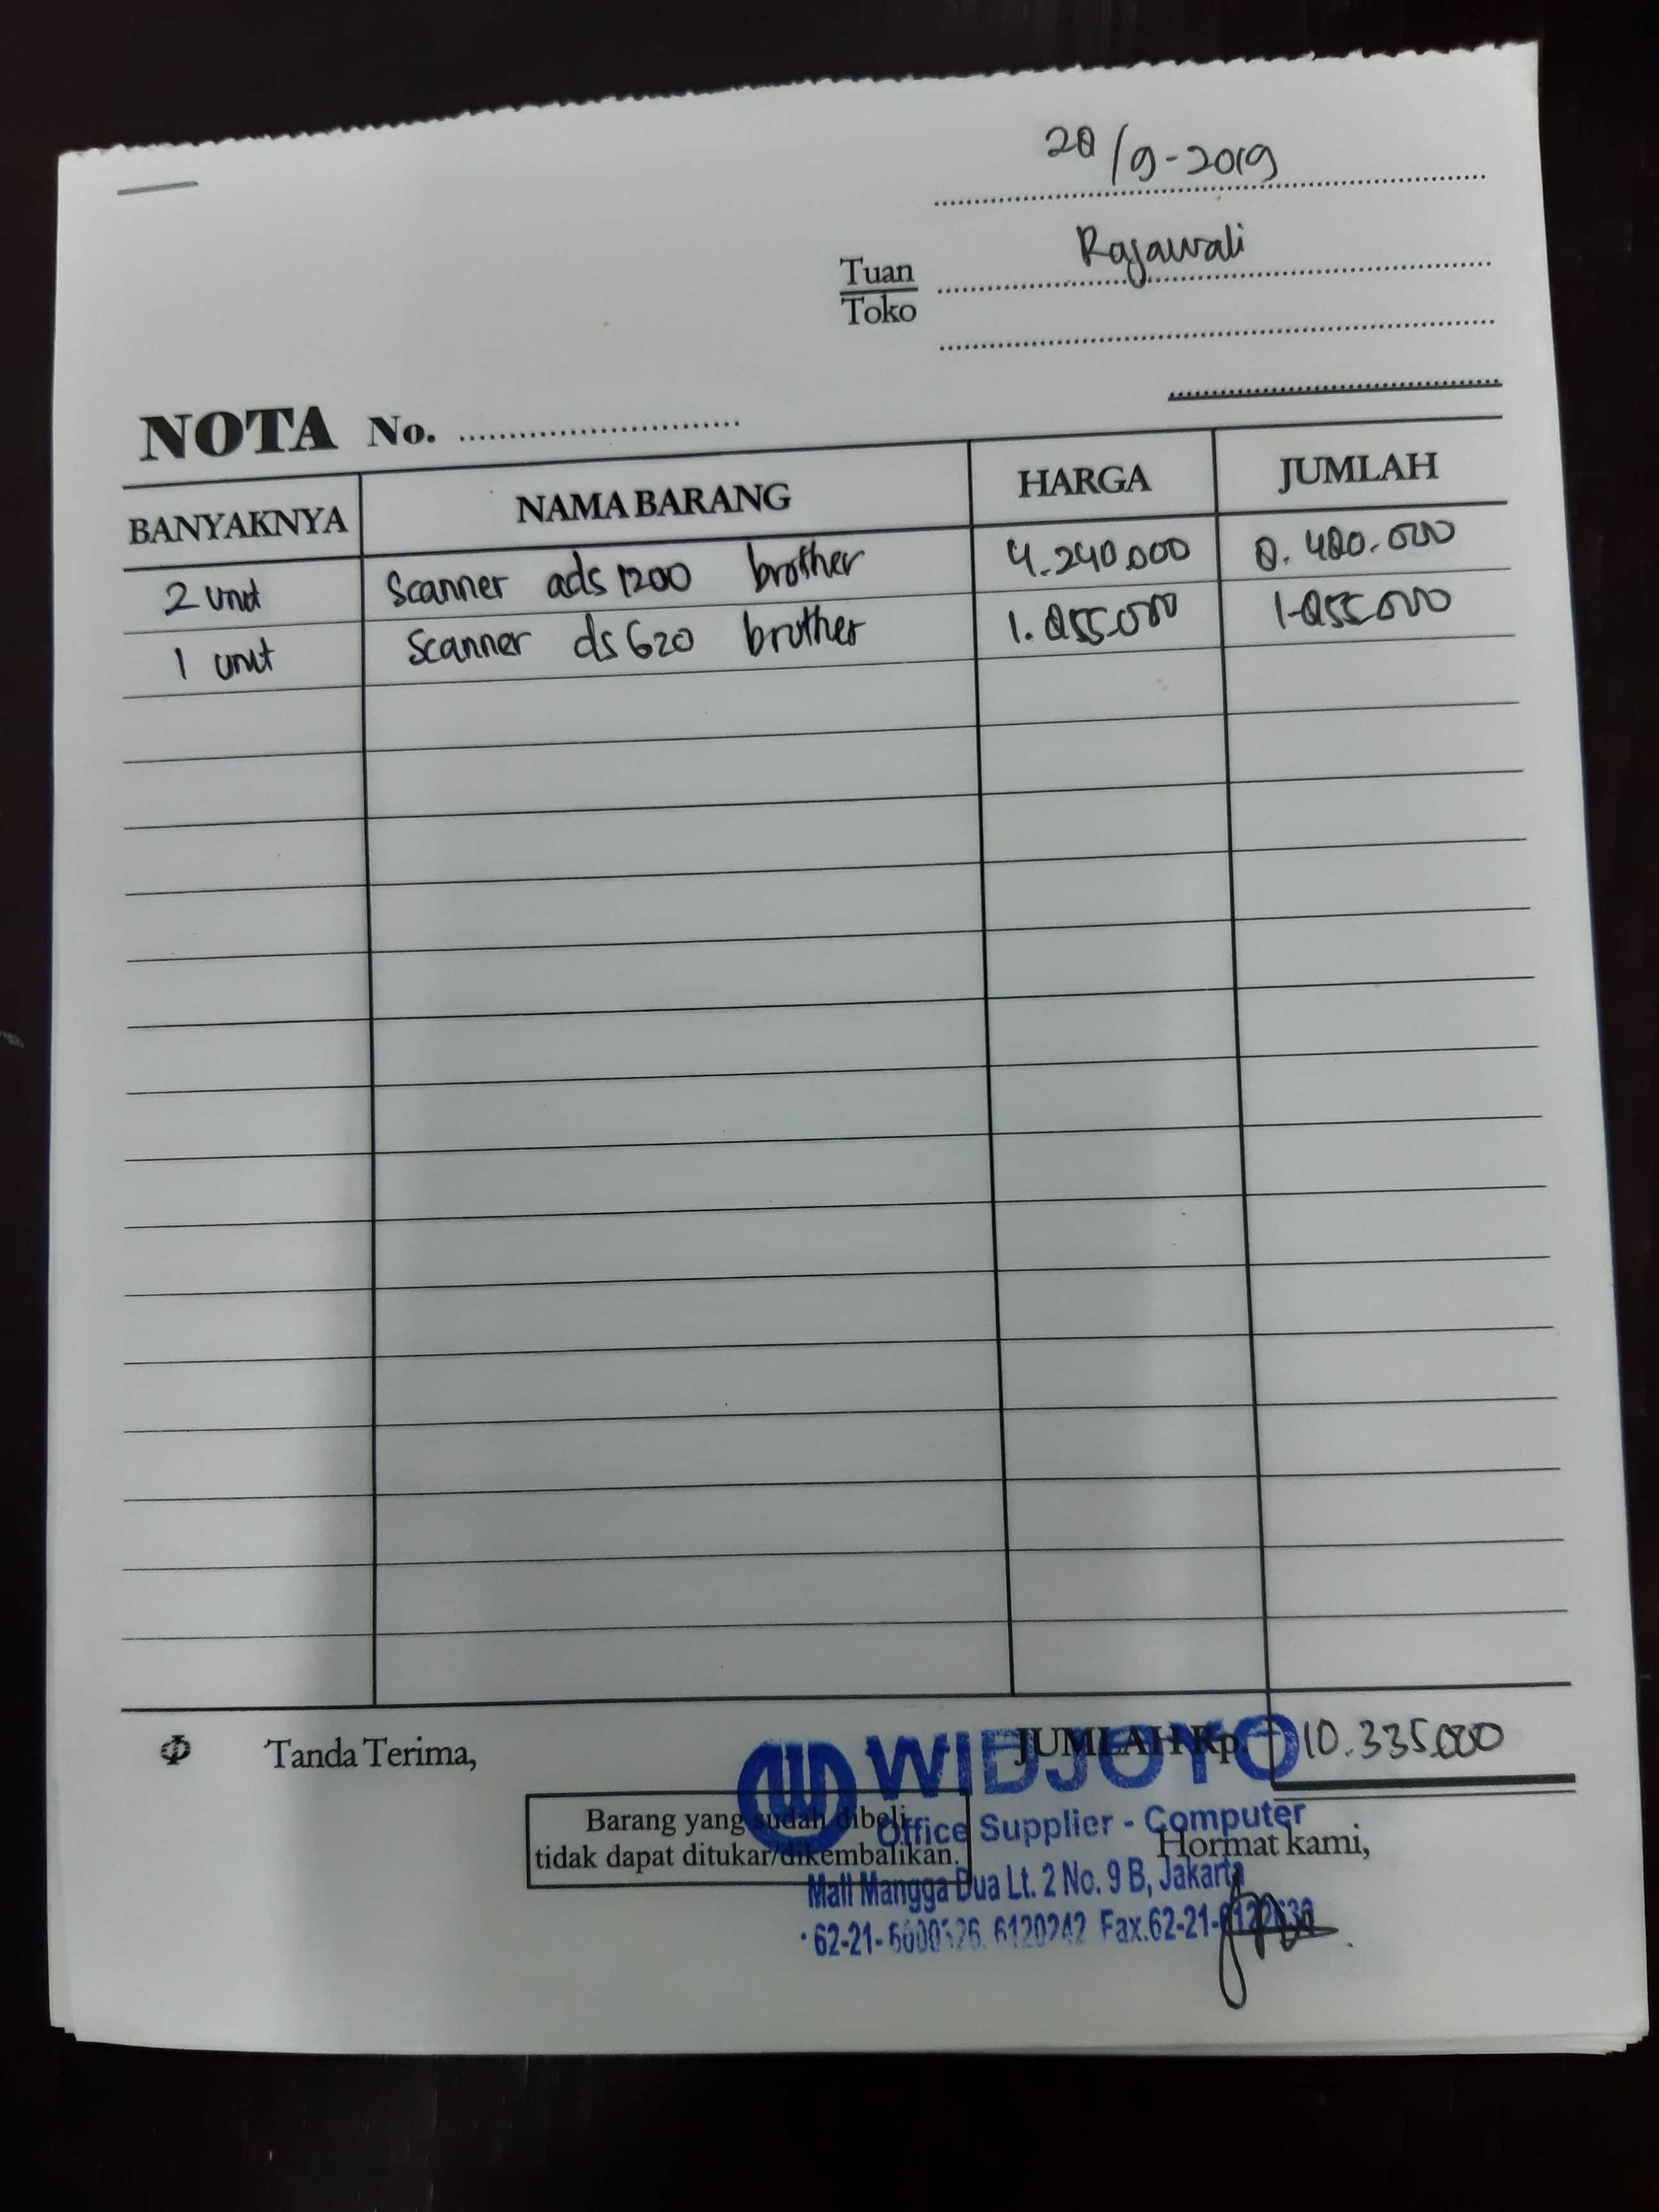 28/9-2019
Tuan Rajawali
Toko
NOTA No.
BANYAKNYA NAMA BARANG HARGA JUMLAH
2 unit Scanner ads 1200 brother 4.240.000 8.480.000
1 unit Scanner ds 620 brother 1.855.000 1.855.000
Tanda Terima, JUMLAH Rp. 10.335.000
WIDJOYO
Office Supplier - Computer
Mall Mangga Dua Lt. 2 No. 9 B, Jakarta
6120242 Fax.
Barang yang sudah dibeli
tidak dapat ditukar/dikembalikan.
Hormat kami,